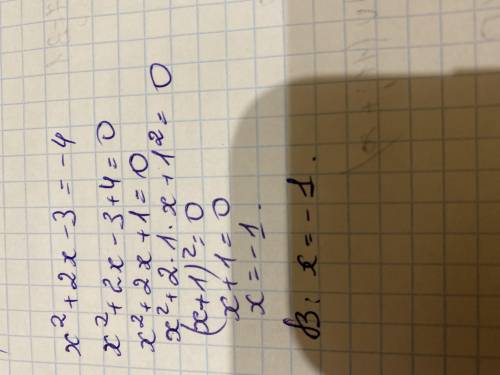 x² + 2x - 3 = -4
x² + 2x - 3 + 4 = 0
x² + 2x + 1 = 0
x² + 2 · 1 · x + 1² = 0
(x + 1)² = 0
x + 1 = 0
x = -1.
В: x = -1.